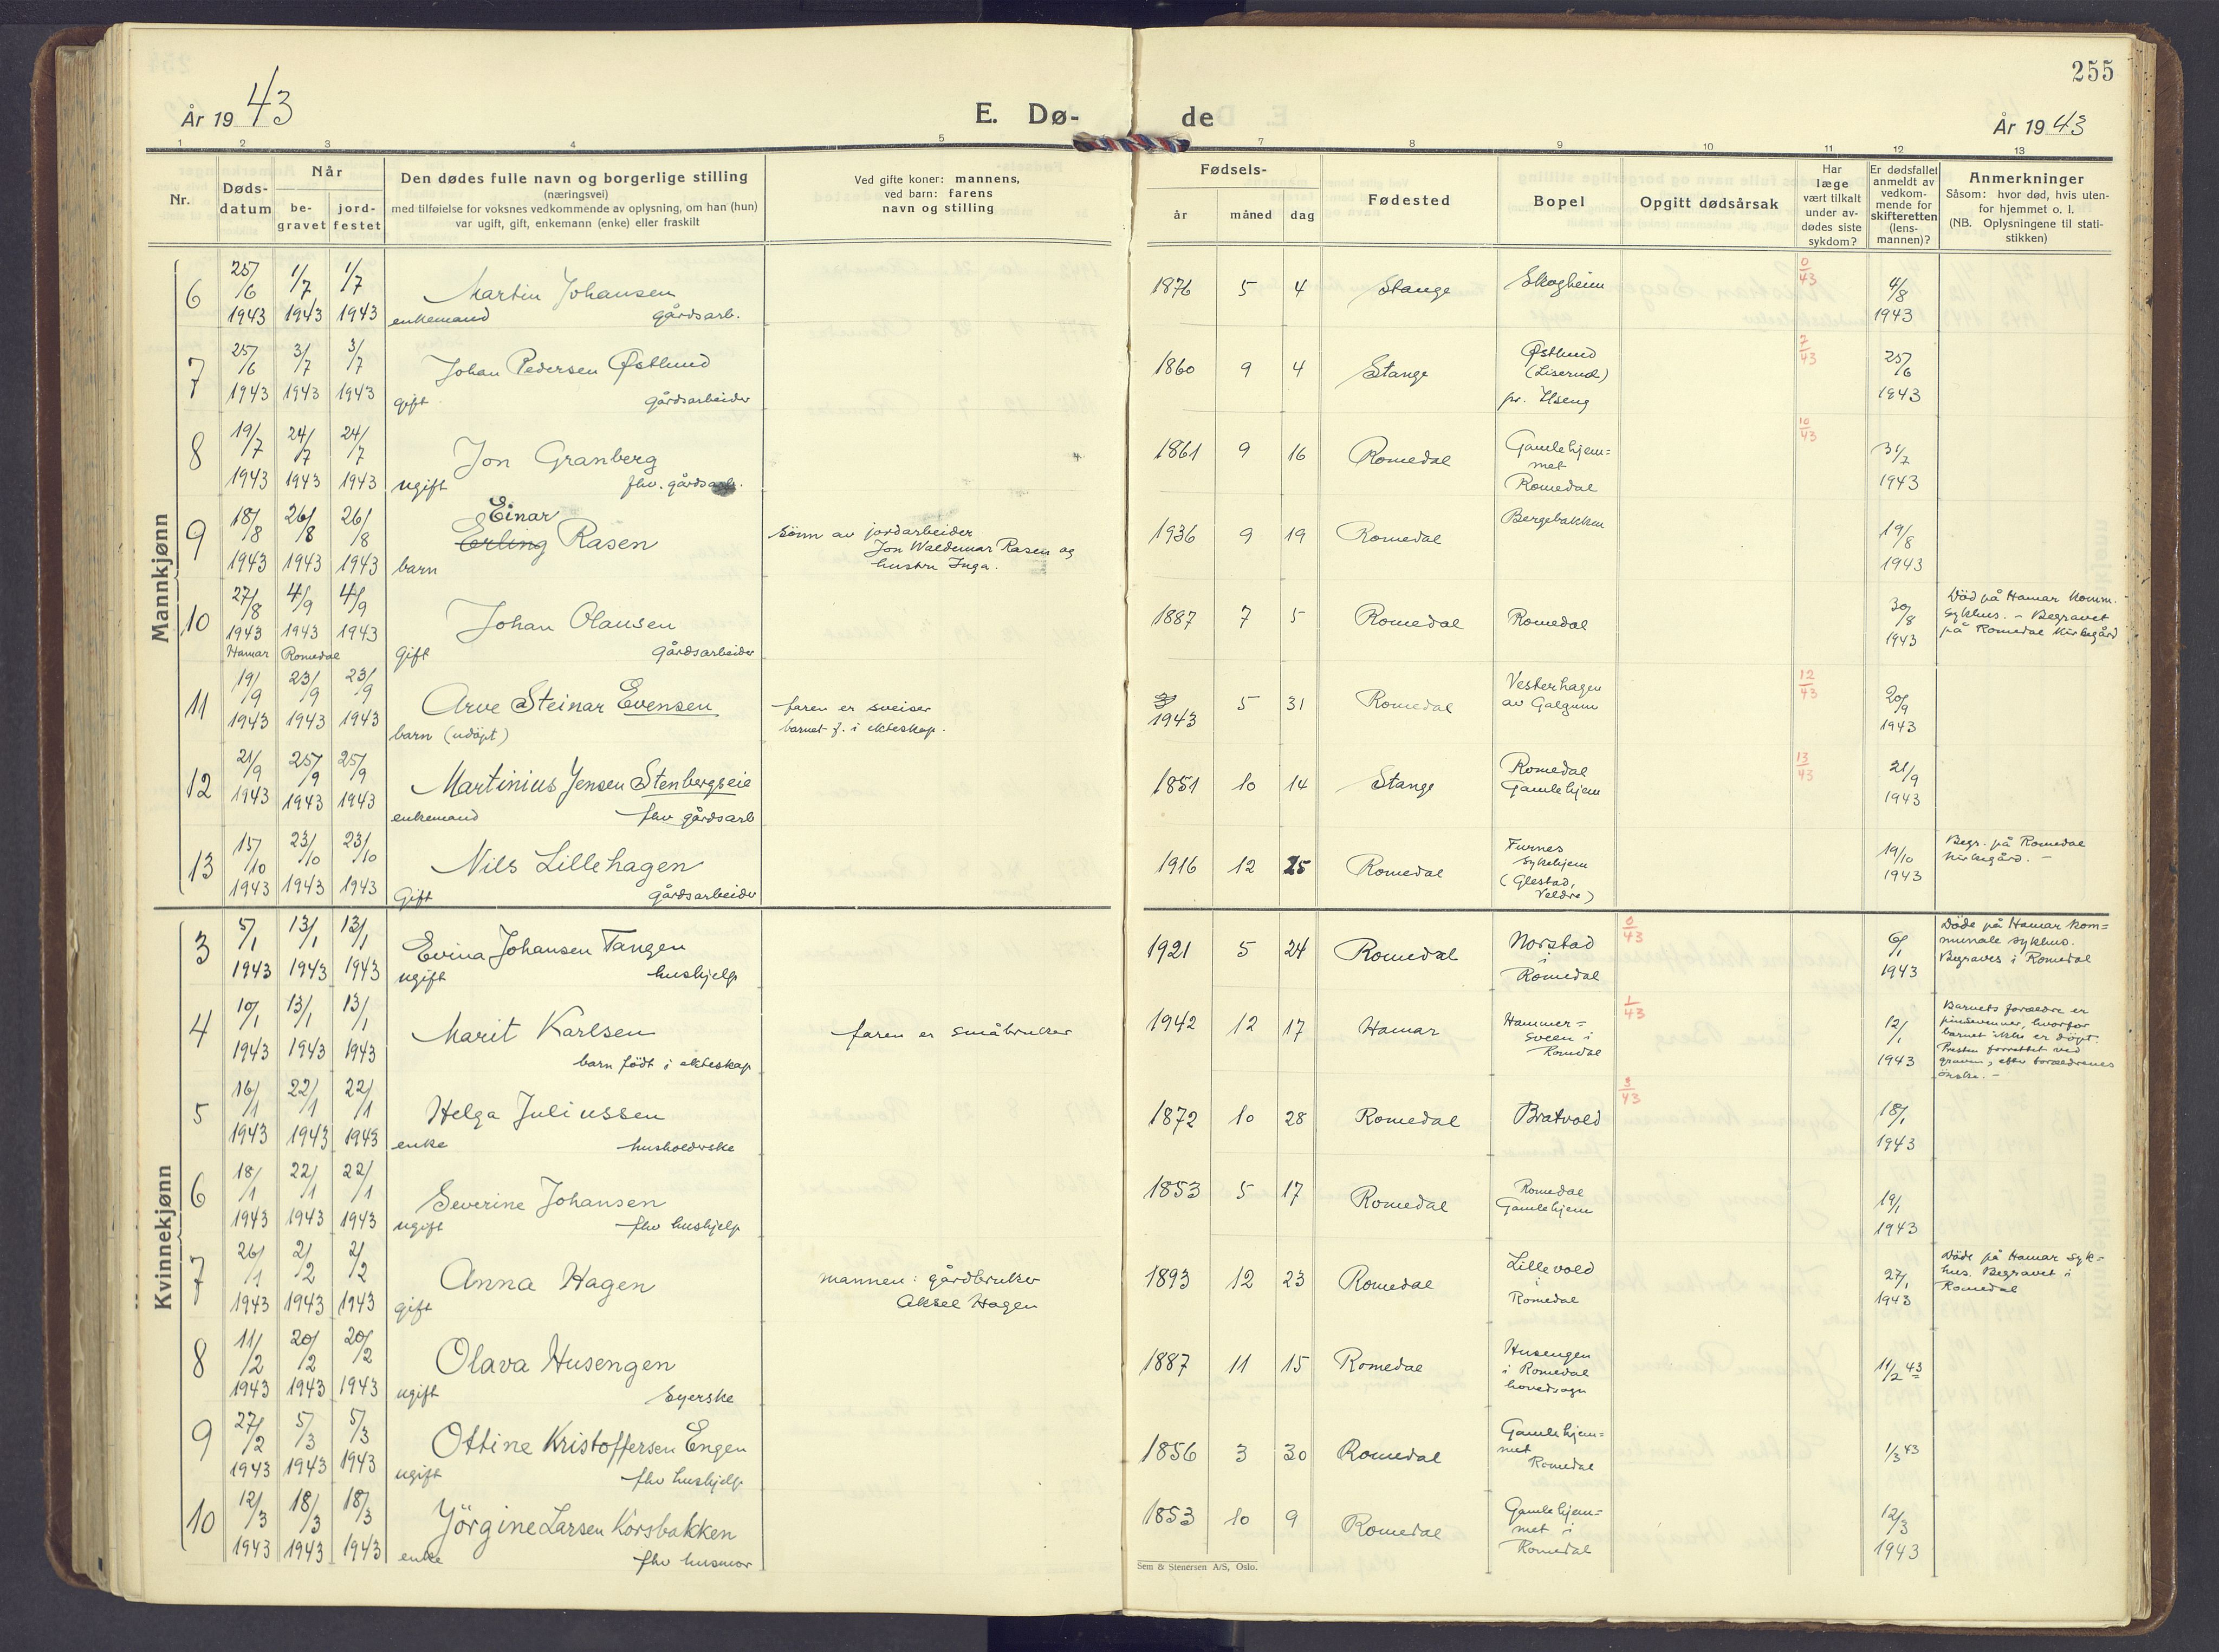 255
År 19 43
E. Dø-
de
År 19 43
1 2 3 4 5
7 8 9 10 11 12 13
Nr.
Døds-
datum
Når
be-
gravet
jord-
festet
Den dødes fulle navn og borgerlige stilling
(næringsvei)
med tilføielse for voksnes vedkommende av oplysning, om han (hun)
var ugift, gift, enkemann (enke) eller fraskilt
Ved gifte koner: mannens,
ved barn: farens
navn og stilling
Fødsels-
år måned dag
Fødested
Bopel
Opgitt dødsårsak
Har
læge
vært tilkalt
under av-
dødes siste
sykdom?
Er dødsfallet
anmeldt av
vedkom-
mende for
skifteretten
(lens-
mannen)?
Anmerkninger
Såsom: hvor død, hvis uten-
for hjemmet o. l.
(NB. Oplysningene til stati-
stikken)
Mannkjønn
6 25/6 1943 1/7 1943 1/7 1943
Martin Johansen
enkemand gårdsarb.
1876 5 4 Stange Skogheim
0/43
4/8 1943
7 25/6 1943 3/7 1943 3/7 1943
Johan Pedersen Østlund
gift gårdsarbeider
1860 9 4 Stange
Østlund
(Liserud)
pr. Ilseng
7/43
25/6 1943
8 19/7 1943 24/7 1943 24/7 1943
Jon Granberg
ugift fhv. gårdsarb.
1861 9 16 Romedal
Gamlehjem=
met
Romedal
10/43
31/7 1943
9 18/8 1943 26/8 1943 26/8 1943
Einar
Erling Rasen
barn
sönn av jordarbeider
Jon Waldemar Rasen og
hustru Inga.
1936 9 19 Romedal Bergebakken
19/8 1943
10 27/8 1943 4/9 1943 4/9 1943
Hamar Romedal
Johan Olausen
gift gårdsarbeider
1887 7 5 Romedal Romedal
30/8 1943
Död på Hamar Komm.
Sykhus. - Begravet
på Romedal Kirkegård
11 19/9 1943 23/9 1943 23/9 1943
Arve Steinar Evensen
barn (udöpt)
faren er sveiser
barnet f. i ekteskap.
1943 5 31 Romedal
Vesterhagen
av Galgum
12/43
20/9 1943
12 21/9 1943 25/9 1943 25/9 1943
Martinius Jensen Stenbergseie
enkemand fhv gårdsarb
1851 10 14 Stange
Romedal
Gamlehjem
13/43
21/9 1943
13 15/10 1943 23/10 1943 23/10 1943
Nils Lillehagen
Gift gårdsarbeider
1916 12 25 Romedal
Furnes
Sykehjem
(Glestad,
Veldre)
19/10 1943
Begr. på Romedal
kirkegård. -
Kvinnekjønn
3 5/1 1943 13/1 1943 13/1 1943
Evina Johansen Tangen
ugift hushjelp
1921 5 24 Romedal
Norstad
i
Romedal
0/43
6/1 1943
Döde på Hamar kom=
munale sykhus.
Begraves i Romedal
4 10/1 1943 13/1 1943 13/1 1943
Marit Karlsen
barn födt i ekteskap
faren er småbruker
1942 12 17 Hamar
Hammer=
sveen i
Romedal
1/43
12/1 1943
Barnets foreldre er
pinsevenner, hvorfor
barnet ikke er döpt.
Presten forrettet ved
graven, efter foreldrenes
önske. -
5 16/1 1943 22/1 1943 22/1 1943
Helga Juliussen
enke husholderske
1872 10 28 Romedal Bratvold
3/43
18/1 1943
6 18/1 1943 22/1 1943 22/1 1943
Severine Johansen
ugift fhv hushjelp
1853 5 17 Romedal
Romedal
Gamlehjem
19/1 1943
7 26/1 1943 2/2 1943 2/2 1943
Anna Hagen
gift
mannen: gårdbruker
Aksel Hagen
1893 12 23 Romedal
Lillevold
i
Romedal
27/1 1943
Döde på Hamar syk=
hus. Begravet i
Romedal
8 11/2 1943 20/2 1943 20/2 1943
Olava Husengen
ugift Syerske
1887 11 15 Romedal
Husengen
i Romedal
hovedsogn
11/2 43
9 27/2 1943 5/3 1943 5/3 1943
Ottine Kristoffersen Engen
ugift fhv hushjelp
1856 3 30 Romedal
Gamlehjem=
met
Romedal
1/3 43
10 12/3 1943 18/3 1943 18/3 1943
Jörgine Larsen Korsbakken
enke fhv husmor
1853 10 9 Romedal
Gamlehjem=
met i
Romedal
12/3 1943
Sem & Stenersen A/S, Oslo.